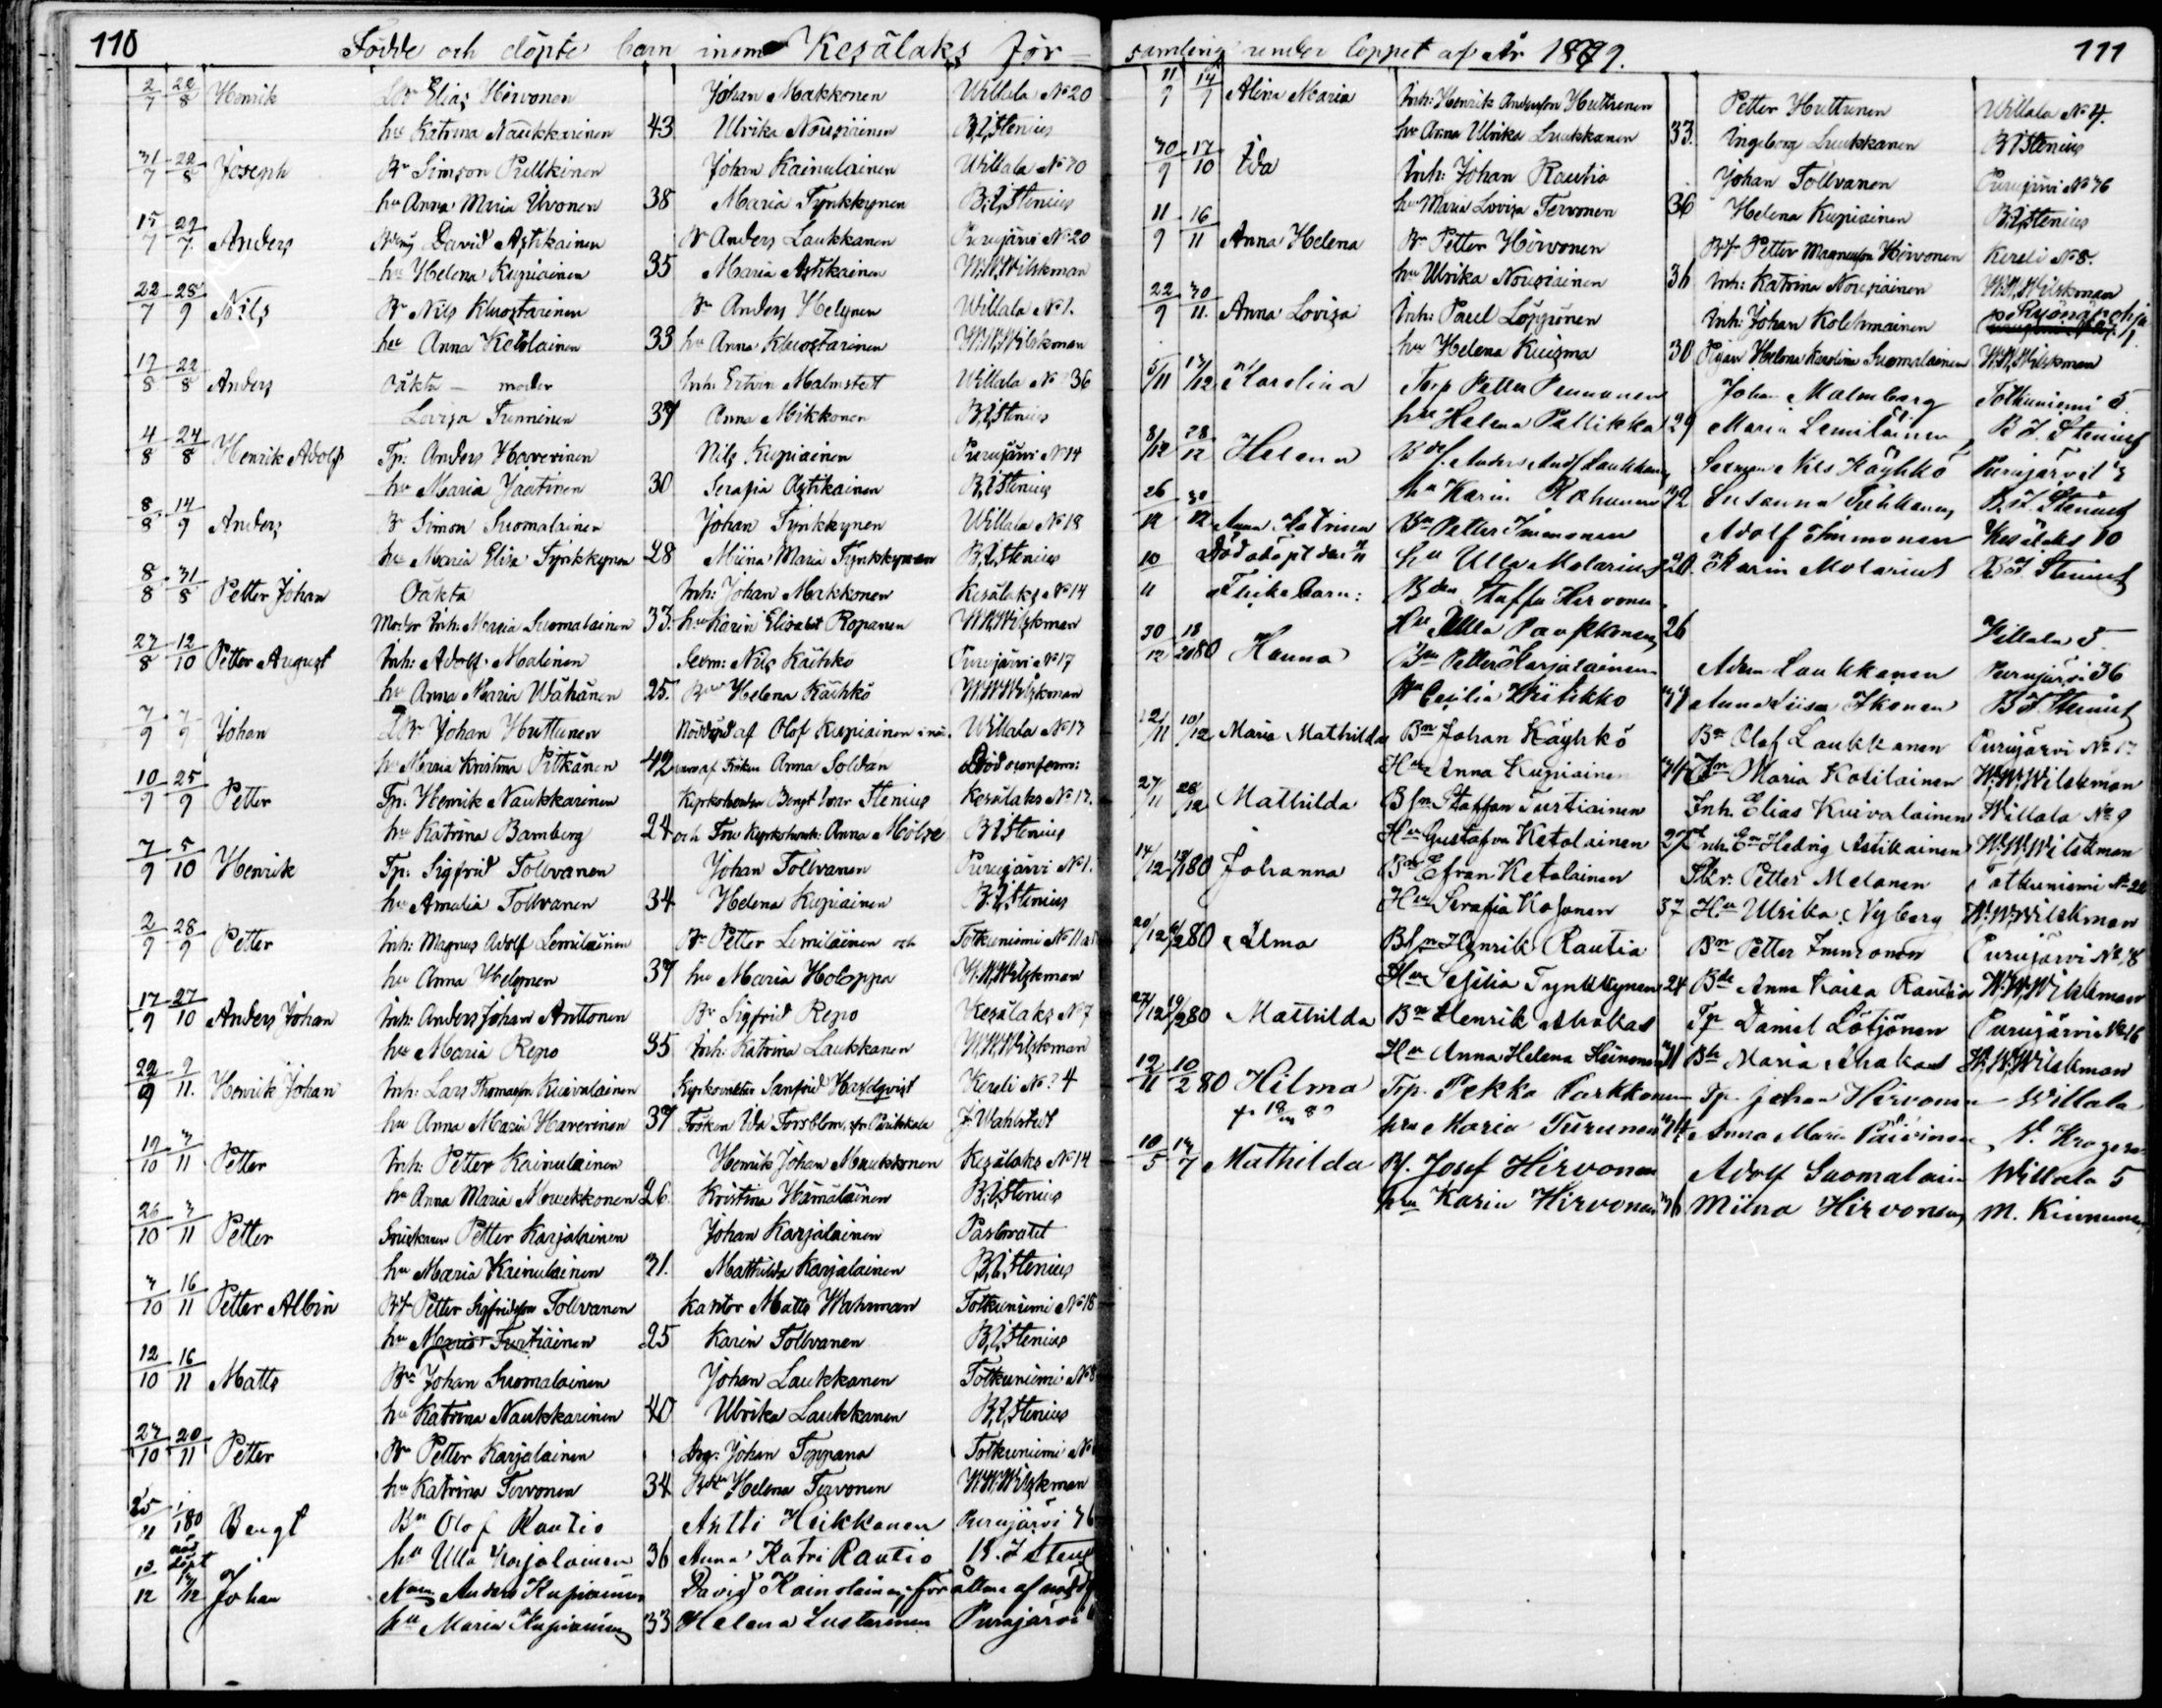 110 Födde och döpte barn inom Kesälaks för-
2/7 22/8 Henrik Elias Hirvonen Johan Makkonen Willala No 20
hu Katrina Naukkarinen 43 Ulrika Nousiainen B.I.Stenius
31/7 22/8 Joseph Br Simson Pullkinen Johan Kainulainen Willala No 10
hu Anna Maria Uvonen 38 Maria Tynkkynen B.I.Stenius
15/7 27/7 Anders David Astikainen Br Anders Laukkanen Purujärvi No 20
hu Helena Kupiainen 35 Maria Astikainen W.W.Wilskman
22/7 28/9 Nils Br Nils Kluostarinen Br Anders Helynen Willala No 1.
hu Anna Ketolainen 33 hu Anna Kluostarinen W.W.Wilskman
17/8 22/8 Anders Oäkta - moder Inh: Malmstedt Willala No 36
Lovisa Tunninen 37 Anna Mikkonen B.I.Stenius
4/8 24/8 Henrik Adolf Tp: Anders Haverinen Nils Kupiainen Purujärvi No 14
hu Maria Jaatinen 30 Serafia Astikainen B.I.Stenius
8/8 14/9 Anders Br Simon Suomalainen Johan Tynkkynen Willala No 18
hu Maria Elisa Tynkkynen 28 Miina Maria Tynkkynen B.I.Stenius
8/8 31/8 Petter Johan Oäkta Inh: Johan Makkonen Kesälaks No 14
Moder Inh: Maria Suomalainen 33. hu Karin Elisabet Ropanen W.W.Wilskman
27/8 12/10 Petter August Inh: Adolf Malinen Sexm: Nils Käihkö Purujärvi No 17
hu Anna Maria Wähänen 25. Helena Käihkö W.W.Wilskman
7/9 7/9 Johan Johan Huttunen Nöddöpt af Olof Kupiainen Willala No 13
hu Maria Kristina Pitkänen 42 Fröken Anna Soldan
10/9 25/9 Petter Tp: Henrik Naukkarinen Kyrkoherden Bengt Ivar Stenius Kesälaks No 13.
hu Katrina Bamberg 24 och Fru Kyrkoherd: Anna B.I.Stenius
7/9 5/10 Henrik Tp: Sigfrid Tollvanen Johan Tollvanen Purujärvi No 1.
hu Amalia Tollvanen 34 Helena Kupiainen B.I.Stenius
2/9 28/9 Petter Inh: Magnus Adolf Lemiläinen Br Petter Lemiläinen och Totkuniemi No 11
hu Anna Helynen 37 hu Maria Holoppa W.W.Wilskman
17/9 27/10 Anders Johan Inh: Anders Johan Anttonen Br Sigfrid Repo Kesälaks No 7
hu Maria Repo 35 Inh: Katrina Laukkanen W.W.Wilskman
22/9 9/11. Henrik Johan Inh: Lars Thomasson Kuivalainen Sanfrid Hasselqvist Kereli No 4
hu Anna Maria Haverinen 37 Fröken Ida Forsblom J. Wahlstedt
19/10 3/11 Petter Inh: Petter Kainulainen Henrik Johan Maukkonen Kesälaks No 14
hu Anna Maria Moukkonen 26 Kristina Hämäläinen B.I.Stenius
26/10 3/11 Petter Petter Karjalainen Johan Karjalainen Pastoratet
hu Maria Kainulainen 31. Mathilda Karjalainen B.I.Stenius
3/10 16/11 Petter Albin Petter Sigfridsson Tollvanen Kantor Matts Wahrman Totkuniemi No 18
hu Maria Turtiainen 25 Karin Tollvanen B.I.Stenius
12/10 16/11 Matts Br Johan Suomalainen Johan Laukkanen Totkuniemi No 8
hu Katrina Naukkarinen 40 Ulrika Laukkanen B.I.Stenius
27/10 20/11 Petter Br Petter Karjalainen Johan Toppana Totkuniemi No
hu Katrina Tervonen 34 Helena Tervonen W.W.Wilskman
25/11 1/180 Bengt Bn Olof Rautio Antti Heikkonen Purujärvi 36
hu Ulla Karjalainen 36 Anna Katri Rautio B.I.Sten
12/12 Johan Anders Kupiainen David Kainolainen
hu Maria Kupiainen 33 Helena Lustarinen Purujärvi
samling under loppet af År 1879. 111
11/9 14/9 Alina Maria Inh: Henrik Andersson Huttunen Petter Huttunen Willala No 4.
hu Anna Ulrika Luukkanen 33. Ingeborg Luukkanen B.I.Stenius
30/9 17/10 Ida Inh: Johan Rautio Johan Tollvanen Purujärvi No 36
hu Maria Lovisa Tervonen 36 Helena Kupiainen B.I.Stenius
11/9 16/11 Anna Helena Br Petter Hirvonen Petter Magnusson Hirvonen Kereli No 8.
hu Ulrika Nousiainen 36 Inh: Katrina Nousiainen W.W.Wilskman
22/9 30/11. Anna Lovisa Inh: Paul Löppönen Inh: Johan Kolehmainen
hu Helena Kuisma 30 Pigan Helena Karolina Suomalainen W.W.Wilskman
5/11 13/12 Karolina Torp Petter Pennanen Johan Malmberg Totkuniemi 5
hu Helena Pallikka 29 Maria Lemiläinen B.I.Stenius
8/12 28/12 Helena Anders Laukkanen Sexman Nils Käyhkö Purujärvi
hu Karin Rahunen 32 Susanna B.I.Stenius
26/12 30/12 Anna Katrina Bn Petter Immonen Adolf Immonen Kesälaks 10
hu Ulla Molarius 20. Karin Molarius B.I.Stenius
10/11 Staffan Hirvonen
hu Ulla Paukkonen 26 Willala 5
30/12 18/2 80 Hanna Bn Petter Karjalainen Adam Laukkanen Purujärvi 36
hu Cecilia Kiitikko 37 Anna Liisa Ikonen B.I.Stenius
12/11 10/12 Maria Mathilda Bn Johan Käyhkö Bn Olof Laukkanen Purujärvi No 17
Hu Anna Kupiainen 34 Maria Kotilainen W.W.Wilskman
27/11 28/12 Mathilda Staffan Turtiainen Inh. Elias Kuivalainen Willala No 9
Hu Gustafva Ketolainen 27 Inh. Hedvig Astikainen W.W.Wilskman
14/12 80 Johanna Efran Ketolainen Petter Melanen Totkuniemi No 22
Hu Serafia Kosonen 37 Hu Ulrika Nyberg W.W.Wilskman
20/12 80 Alma Henrik Rautia Bn Petter Immonen Purujärvi No 18
Hu Sesilia Tynkkynen 24 Anna Kaisa Rautia W.W.Wilskman
27/12 80 Mathilda Bn Henrik Ahokas Tp Daniel Lötjönen Purujärvi No 16
Hu Anna Helena Heinonen 31 Maria Ahokas W.W.Wilskman
12/11 10/2 80 Hilma Trp. Pekka Parkkonen Tp. Johan Hirvonen Willala
hru Maria Turunen 34 Anna Maria Päivinen
10/5 13/7 Mathilda Josef Hirvonen Adolf Suomalain Willala 5
hru Karin Hirvonen 36 Miina Hirvonen M. Kinnunen